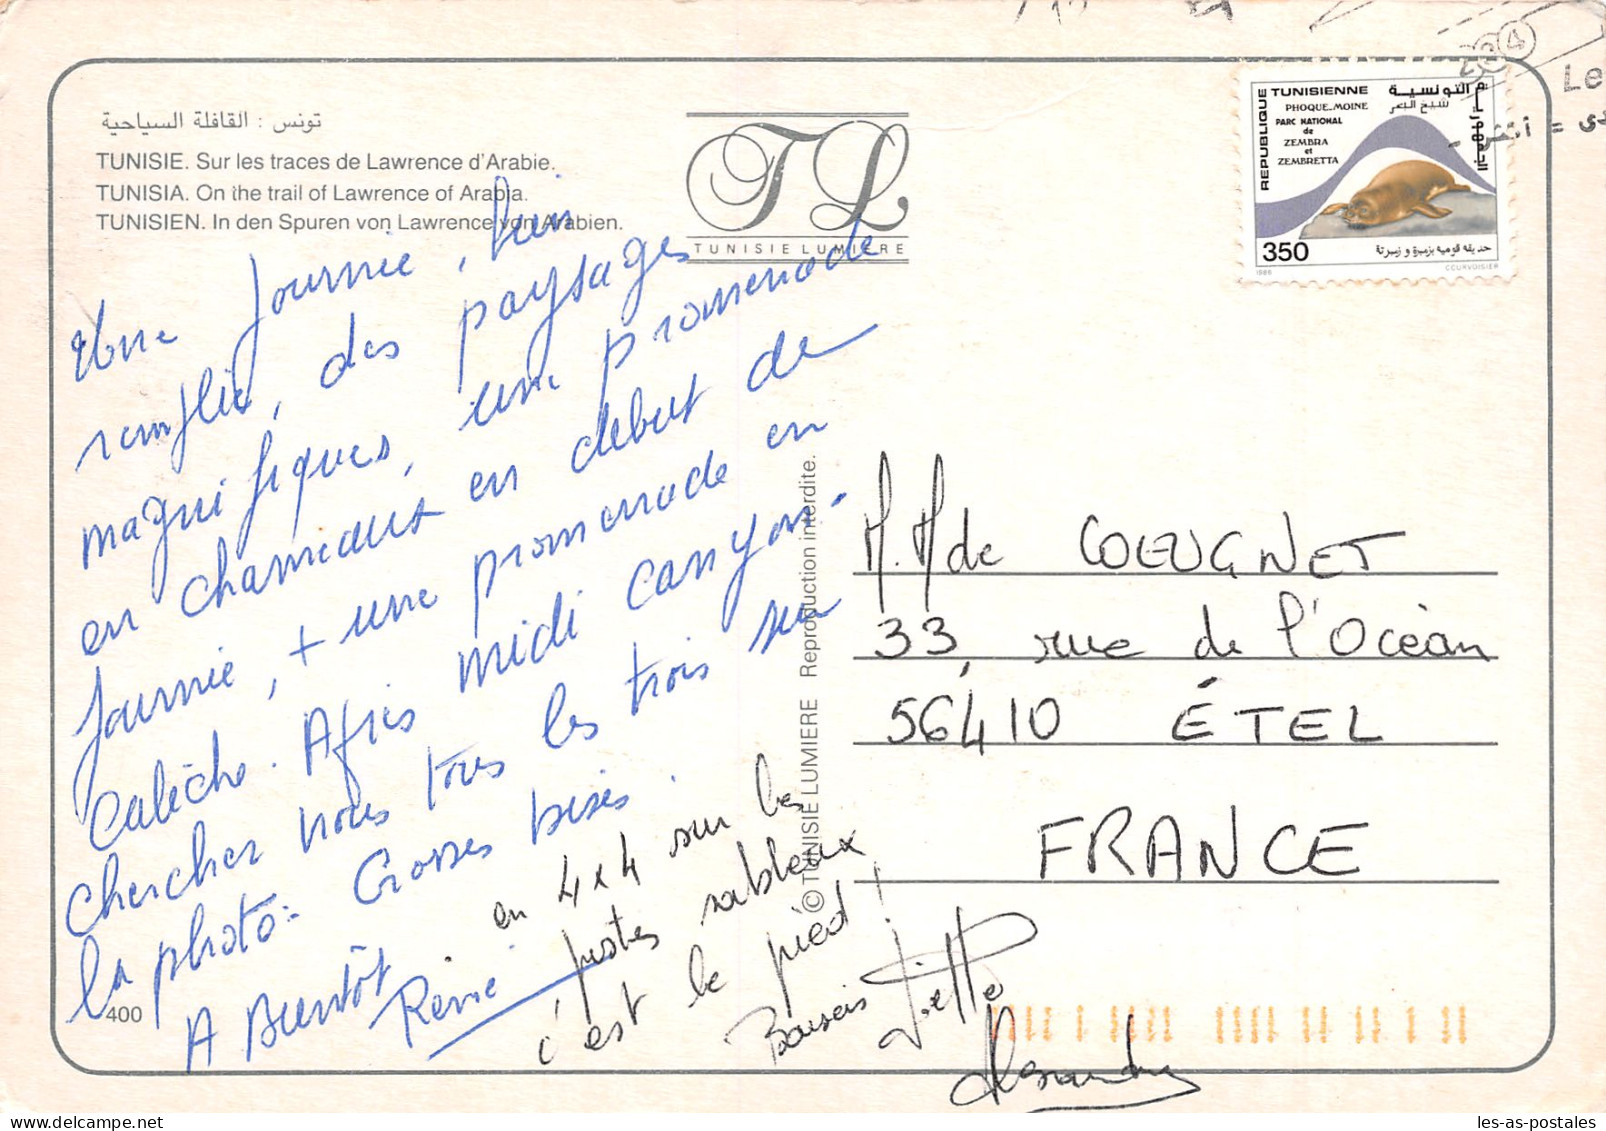 تونس : القافلة السياحية
TUNISIE. Sur les traces de Lawrence d'Arabie.
TUNISIA. On the trail of Lawrence of Arabia.
TUNISIEN. In den Spuren von Lawrence von Arabien.
TL
TUNISIE LUMIERE
REPUBLIQUE TUNISIENNE
الجمهورية التونسية
PHOQUE-MOINE
شيخ البحر
PARC NATIONAL
de
ZEMBRA
et
ZEMBRETTA
350
1986
COURVOISIER
Le
Une journée, bien
remplie, des paysages
magnifiques, une promenade
en chameaux en debut de
journée, + une promenade en
calèche. Après midi canyon.
chercher nous tous les trois sur
la photo. Grosses bises.
A Bientôt
René
en 4x4 sur les
pistes sableux
c'est le pièd !
Baiseis
Alexandra
© TUNISIE LUMIERE Reproduction interdite.
400
M. Mde COEUGNET
33, rue de l'Océan
56410 ÉTEL
FRANCE
les-as-postales